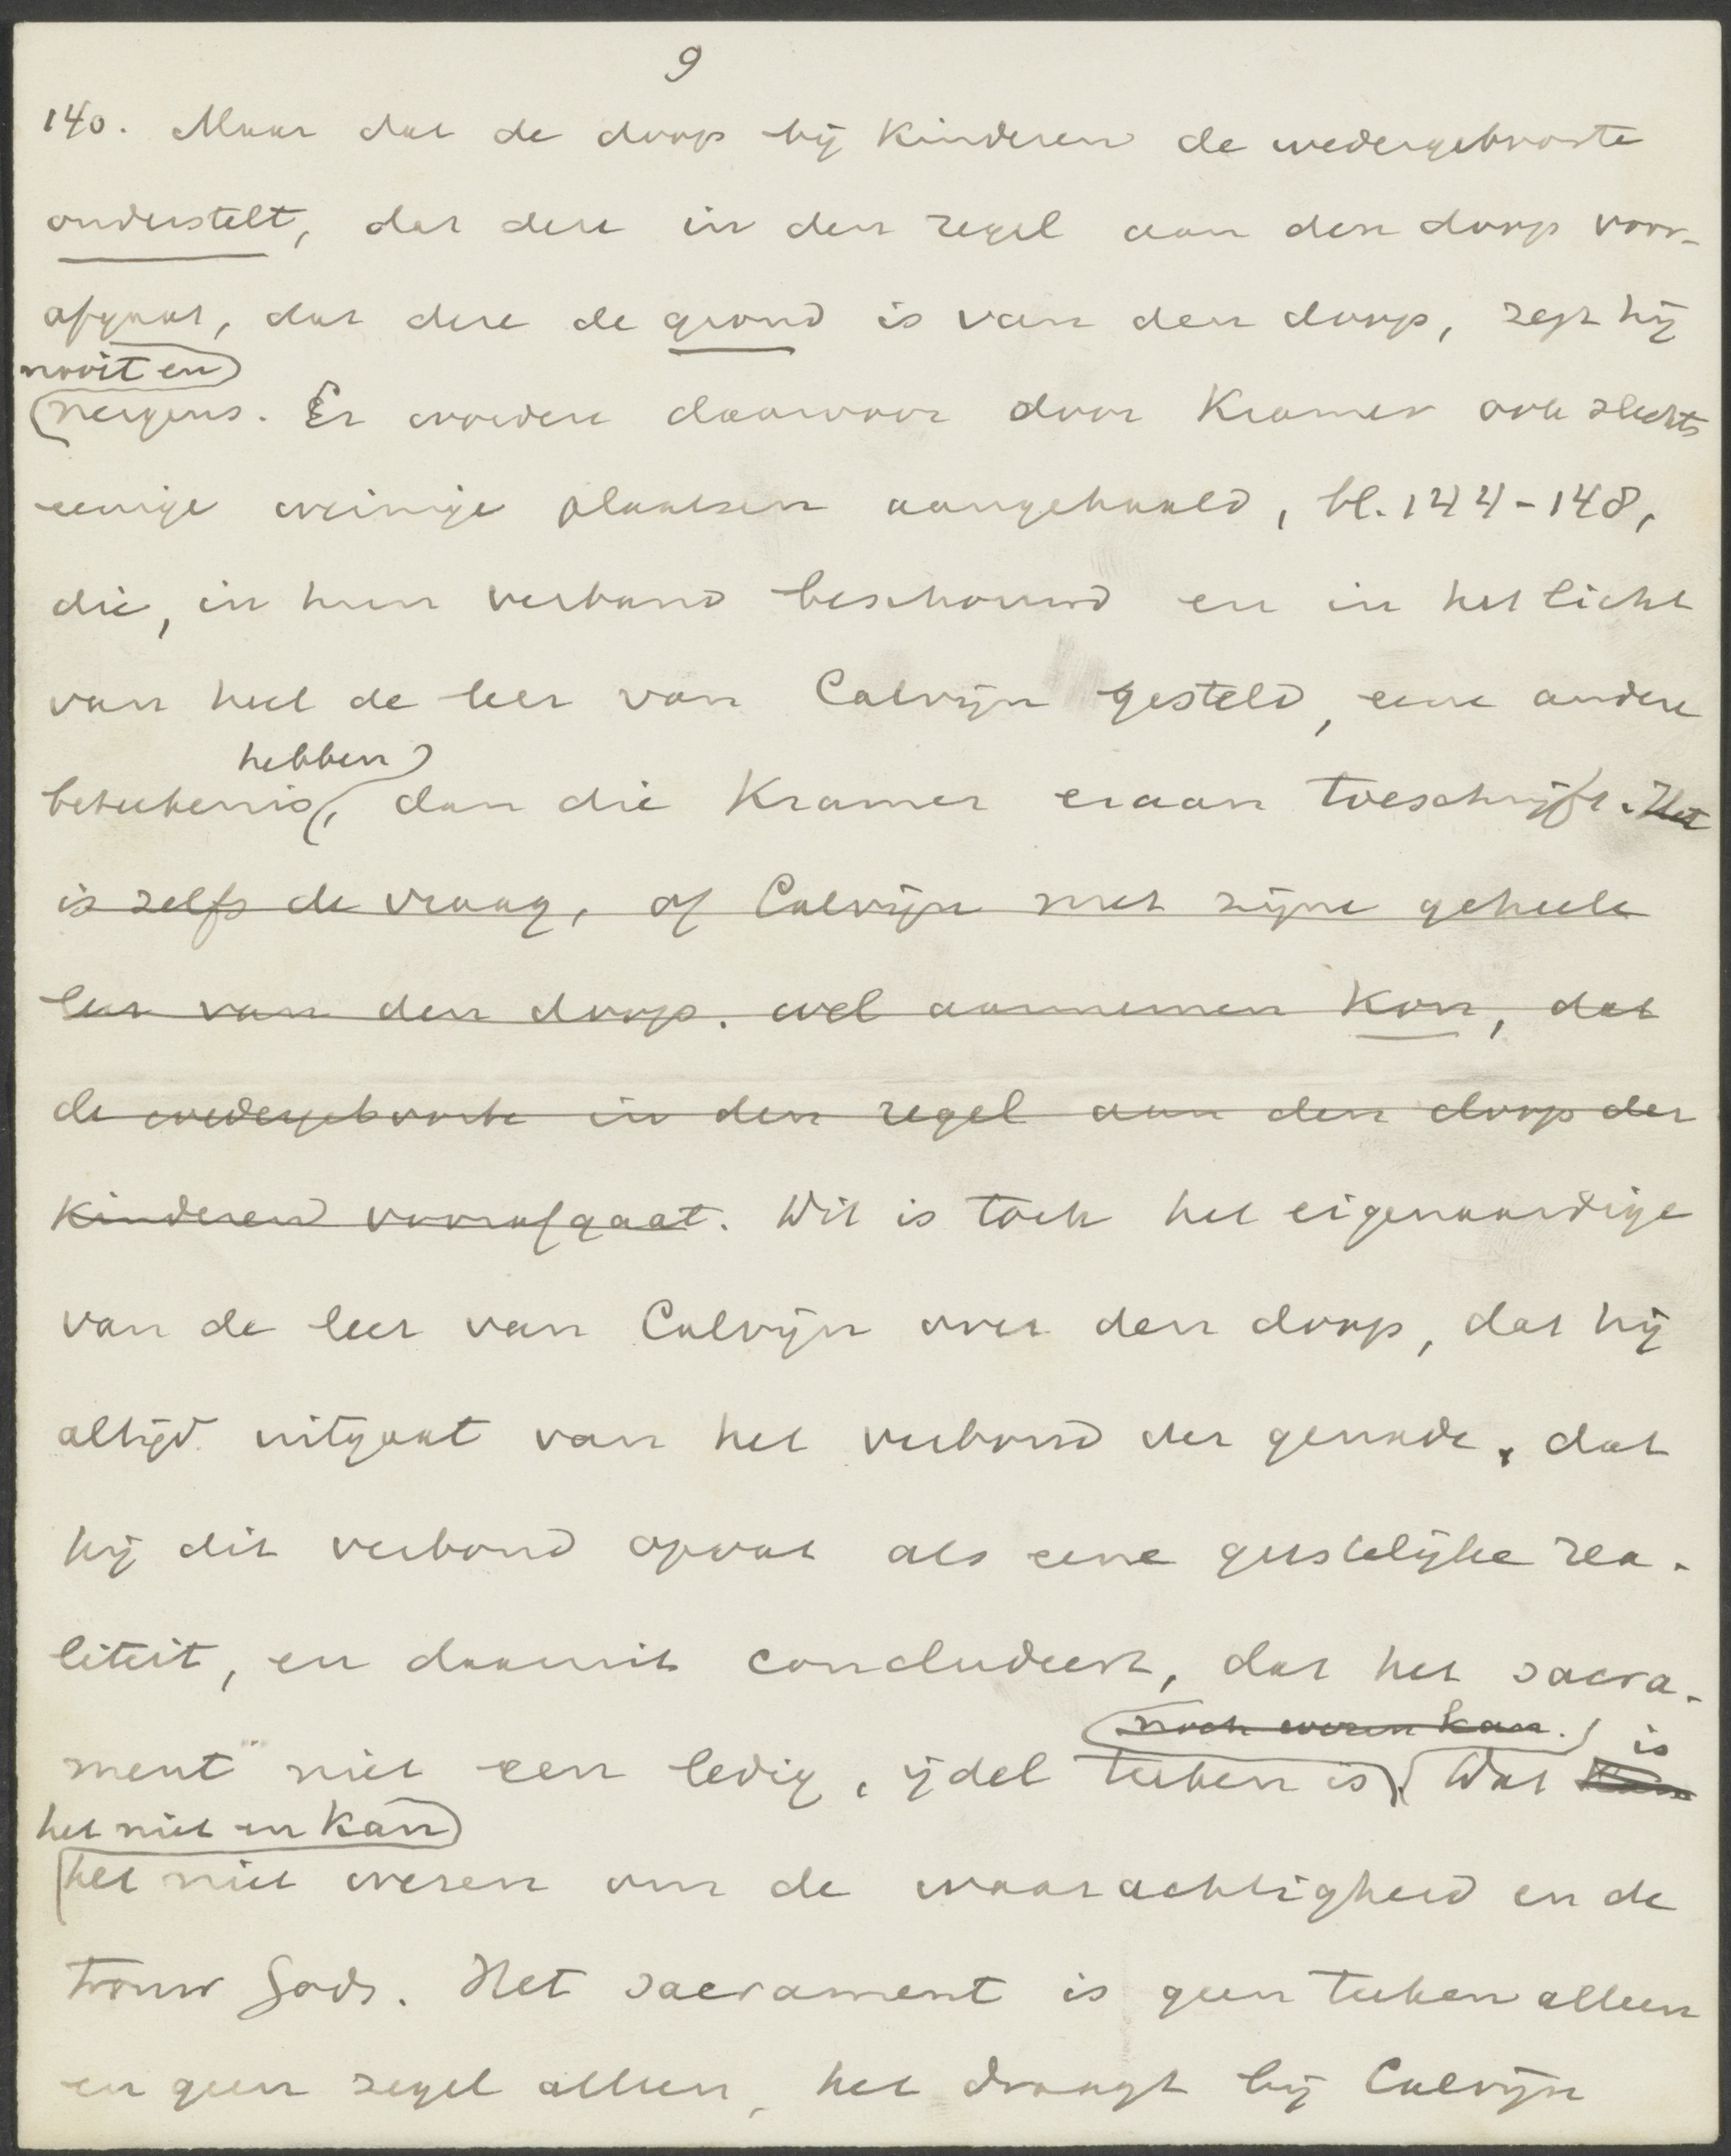 9
140. Maar dat de doop bij kinderen de wedergeboorte
onderstelt, dat deze in den regel aan den doop voor-
afgaat, dat deze de grond is van den doop, zegt hij
nooit en
nergens. Er worden daarvoor door Kramer ook slechts
eenige weinige plaatsen aangehaald, bl. 144-148,
die, in hun verband beschouwd en in het licht
van heel de leer van Calvijn gesteld, eene andere
hebben
beteekenis, dan die Kramer eraan toeschrijft. Het
is zelfs de vraag, of Calvijn met zijne geheele
leer van den doop. wel aannemen kon, dat
de wedergeboorte in den regel aan den doop der
kinderen voorafgaat. Dit is toch het eigenaardige
van de leer van Calvijn over den doop, dat hij
altijd uitgaat van het verbond der genade, dat
hij dit verbond opvat als eene geestelijke rea-
liteit, en daaruit concludeert, dat het sacra-
noch wezen kan. is
ment niet een ledig, ijdel teeken is. Dat
het niet en kan
het niet wezen om de waarachtigheid en de
trouw Gods. Het sacrament is geen teeken alleen
en geen zegel alleen, het draagt bij Calvijn